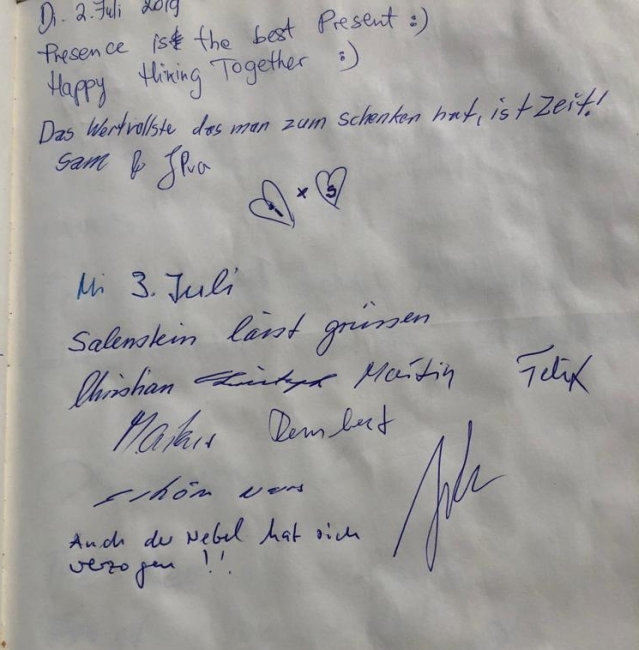 Di. 2. Juli 2019
Presence is the best Present :)
Happy Hiking Together :)
Das Wertvollste das man zum schenken hat, ist Zeit!
Sam &
x S
Mi 3. Juli
Salenstein lässt grüssen
Christian Martin Felix
Markus
schön wars
Auch der Nebel hat sich
verzogen !!